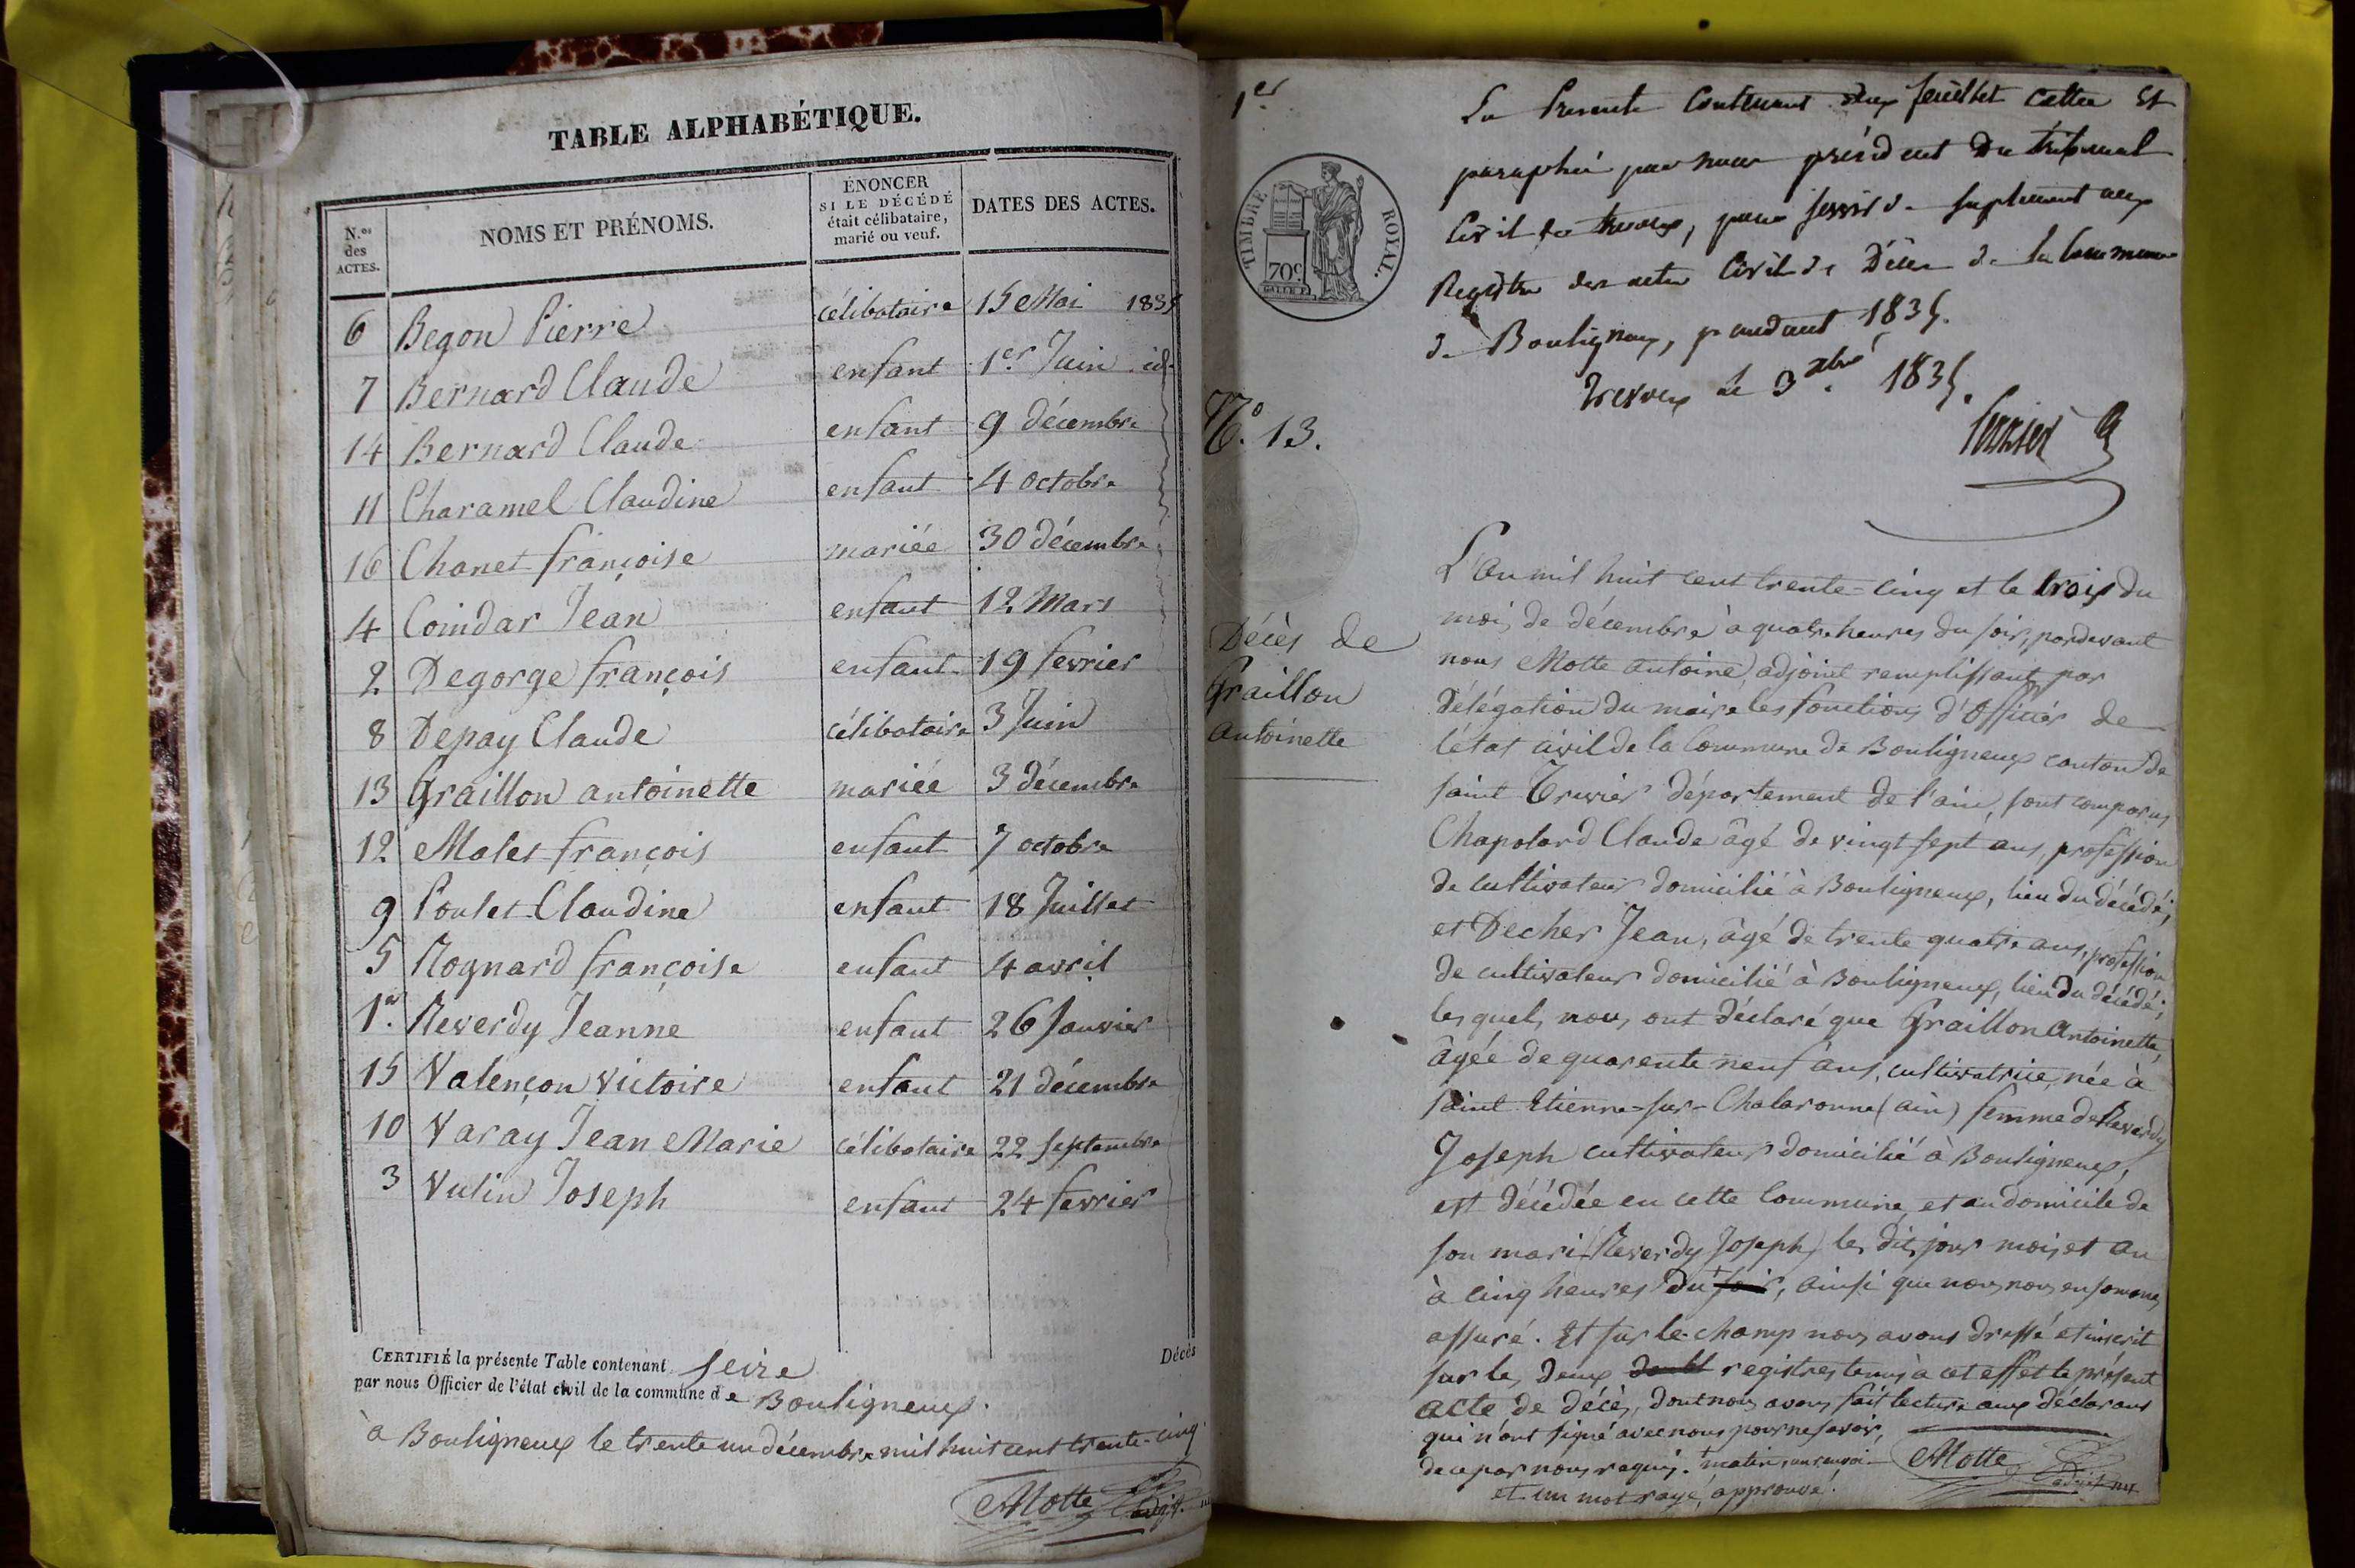 TABLE ALPHABÉTIQUE.
N.os des ACTES.
NOMS ET PRÉNOMS.
ÉNONCER SI LE DÉCÉDÉ était célibataire, marié ou veuf.
DATES DES ACTES.
6 Begon Pierre célibataire 15 Mai 1835
7 Bernard Claude enfant 1er Juin id.
14 Bernard Claude enfant 9 décembre
11 Charamel Claudine enfant 4 octobre
16 Chanet françoise mariée 30 décembre
4 Coindar Jean enfant 12 Mars
2 Degorge françois enfant 19 fevrier
8 Depay Claude célibataire 3 Juin
13 Graillon antoinette mariée 3 décembre
12 Males françois enfant 7 octobre
9 Poulet Claudine enfant 18 Juillet
5 Rognard françoise enfant 4 avril
1er Reverdy Jeanne enfant 26 Janvier
15 Valençon Victoire enfant 21 décembre
10 Varay Jean Marie célibataire 22 septembre
3 Vulin Joseph enfant 24 fevrier
CERTIFIÉ la présente Table contenant seize Décès
par nous Officier de l'état civil de la commune de Bouligneux.
à Bouligneux le trente un décembre mil huit cent trente-cinq
Motte adjt.
1er
La Presente Contenant deux feuillet cottée Et
paraphée par nous président Du tribunal
Civil de trevoux, pour servir de suplement aux
Registre des actes Civil de Décès de la Commune
de Bouligneux, pendant 1835.
Trevoux le 3 xbre 1835.
TIMBRE ROYAL.
70c
N.o 13.
Décès de
Graillon
antoinette
L'an mil huit cent trente-cinq et le trois du
mois de décembre à quatre heures du soir, pardevant
nous Motte antoine, adjoint remplissant par
délégation du maire les fonctions d'Officier de
l'état civil de la Commune de Bouligneux canton de
saint Trivier département de l'ain, sont comparus
Chapolard Claude âgé de vingt sept ans, profession
de cultivateur domicilié à Bouligneux, lieu du décédé;
et Decher Jean, âgé de trente quatre ans, profession
de cultivateur domicilié à Bouligneux, lieu du décédé;
lesquels nous ont déclaré que Graillon Antoinette,
âgée de quarente neuf ans, cultivatrice, née à
Saint Etienne-sur-Chalaronne (ain) femme de Reverdy
Joseph cultivateur domicilié à Bouligneux,
est décédée en cette Commune, et au domicile de
son mari Reverdy Joseph, les dits jour mois et an
à cinq heures du soir, ainsi que nous nous en sommes
assuré. Et sur le-champ nous avons dressé et inscrit
sur les deux doubl registres tenus à cet effet le présent
acte de décès, dont nous avons fait lecture aux déclarans
qui n'ont signé avec nous pour ne savoir,
de ce par nous requis. matin en renvoi
et un mot rayé, approuvé.
Motte